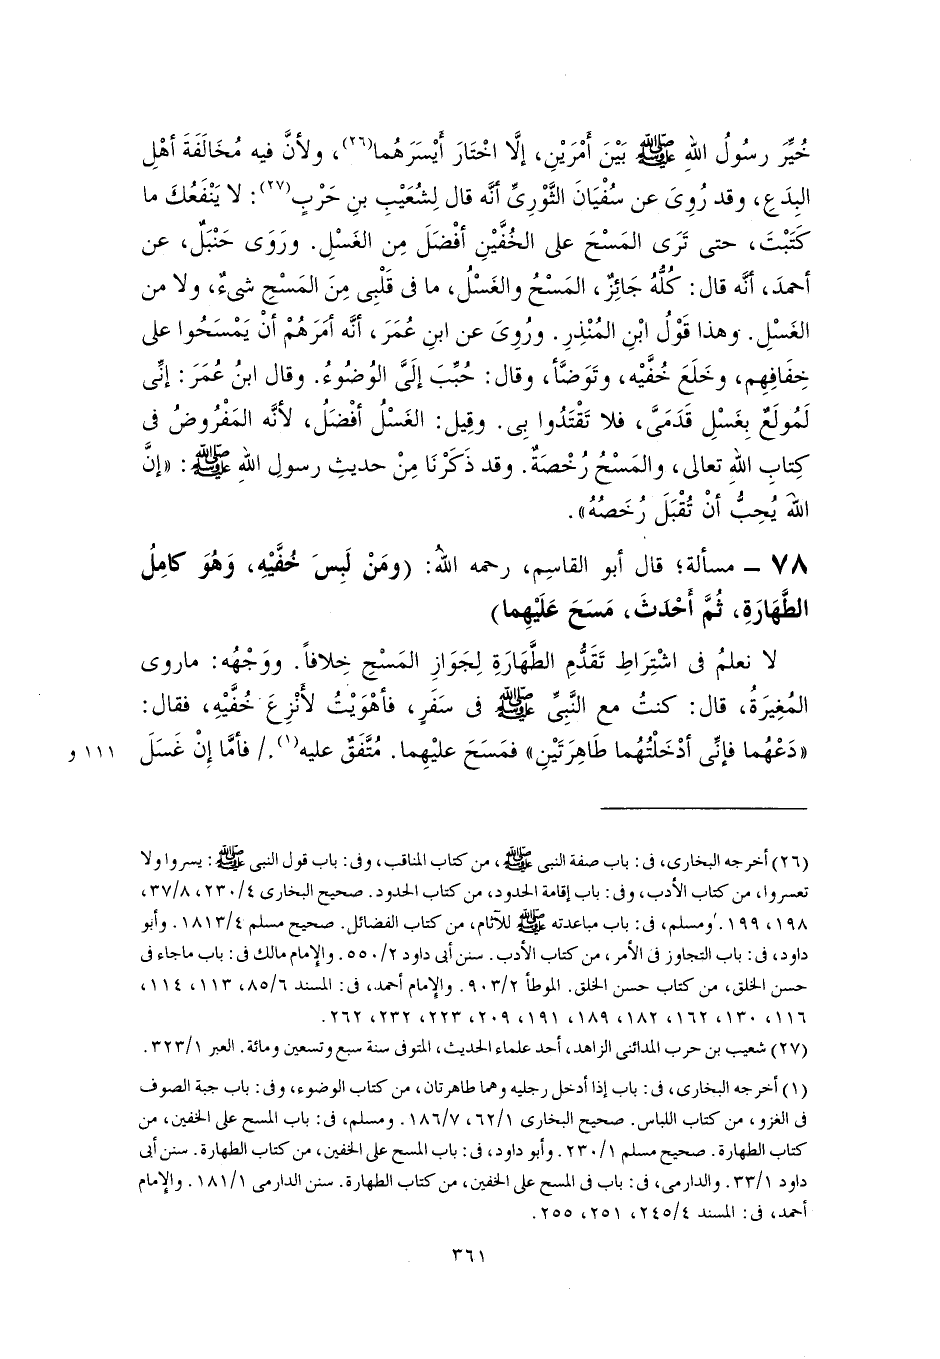 خُيِّرَ رسُولُ اللهِ ﷺ بَيْنَ أَمْرَيْنِ، إلَّا اخْتَارَ أَيْسَرَهُما(٢٦)، ولأنَّ فيه مُخَالَفَةَ أهْلِ
البِدَعِ، وقد رُوِىَ عن سُفْيَانَ الثَّوْرِىِّ أنَّه قال لِشُعَيْبِ بنِ حَرْبٍ(٢٧): لا يَنْفَعُكَ ما
كَتَبْتَ، حتى تَرَى المَسْحَ على الخُفَّيْنِ أفْضَلَ مِن الغَسْلِ. ورَوَى حَنْبَلٌ، عن
أحمدَ، أنَّه قال: كُلُّهُ جَائِزٌ، المَسْحُ والغَسْلُ، ما فى قَلْبِى مِنَ المَسْحِ شىءٌ، ولا من
الغَسْلِ. وهذا قَوْلُ ابْنِ المُنْذِرِ. ورُوِىَ عن ابنِ عُمَرَ، أنَّه أمَرَهُمْ أنْ يَمْسَحُوا على
خِفَافِهِم، وخَلَعَ خُفَّيْه، وتَوَضَّأ، وقال: حُبِّبَ إلَىَّ الوُضُوءُ. وقال ابنُ عُمَرَ: إنِّى
لَمُولَعٌ بِغَسْلِ قَدَمَىَّ، فلا تَقْتَدُوا بِى. وقِيل: الغَسْلُ أفْضَلُ، لأنَّه المَفْرُوضُ فى
كِتابِ اللهِ تعالى، والمَسْحُ رُخْصَةٌ. وقد ذَكَرْنَا مِنْ حديثِ رسولِ اللهِ ﷺ: «إنَّ
اللهَ يُحِبُّ أنْ تُقْبَلَ رُخَصُهُ».
٧٨ – مسألة؛ قال أبو القاسِم، رحمه اللهُ: (ومَنْ لَبِسَ خُفَّيْهِ، وَهُوَ كامِلُ
الطَّهَارَةِ، ثُمَّ أَحْدَثَ، مَسَحَ عَلَيْهِما)
لا نعلمُ فى اشْتِراطِ تَقَدُّمِ الطَّهَارَةِ لِجَوَازِ المَسْحِ خِلافاً. ووَجْهُه: ماروى
المُغِيرَةُ، قال: كنتُ مع النَّبِىِّ ﷺ فى سَفَرٍ، فأهْوَيْتُ لأنْزِعَ خُفَّيْهِ، فقال:
«دَعْهُما فإنِّى أدْخَلْتُهُما طَاهِرَتَيْنِ» فمَسَحَ عليْهِما. مُتَّفَقٌ عليه(١)./ فأمَّا إنْ غَسَلَ ١١١ و
(٢٦) أخرجه البخارى، فى: باب صفة النبى ﷺ، من كتاب المناقب، وفى: باب قول النبى ﷺ: يسروا ولا
تعسروا، من كتاب الأدب، وفى: باب إقامة الحدود، من كتاب الحدود. صحيح البخارى ٢٣٠/٤، ٣٧/٨،
١٩٨، ١٩٩. ومسلم، فى: باب مباعدته ﷺ للآثام، من كتاب الفضائل. صحيح مسلم ١٨١٣/٤. وأبو
داود، فى: باب التجاوز فى الأمر، من كتاب الأدب. سنن أبى داود ٥٥٠/٢. والإمام مالك فى: باب ماجاء فى
حسن الخلق، من كتاب حسن الخلق. الموطأ ٩٠٣/٢. والإمام أحمد، فى: المسند ٨٥/٦، ١١٣، ١١٤،
١١٦، ١٣٠، ١٦٢، ١٨٢، ١٨٩، ١٩١، ٢٠٩، ٢٢٣، ٢٣٢، ٢٦٢.
(٢٧) شعيب بن حرب المدائنى الزاهد، أحد علماء الحديث، المتوفى سنة سبع وتسعين ومائة. العبر ٣٢٣/١.
(١) أخرجه البخارى، فى: باب إذا أدخل رجليه وهما طاهرتان، من كتاب الوضوء، وفى: باب جبة الصوف
فى الغزو، من كتاب اللباس. صحيح البخارى ٦٢/١، ١٨٦/٧. ومسلم، فى: باب المسح على الخفين، من
كتاب الطهارة. صحيح مسلم ٢٣٠/١. وأبو داود، فى: باب المسح على الخفين، من كتاب الطهارة. سنن أبى
داود ٣٣/١. والدارمى، فى: باب فى المسح على الخفين، من كتاب الطهارة. سنن الدارمى ١٨١/١. والإمام
أحمد، فى: المسند ٢٤٥/٤، ٢٥١، ٢٥٥.
٣٦١